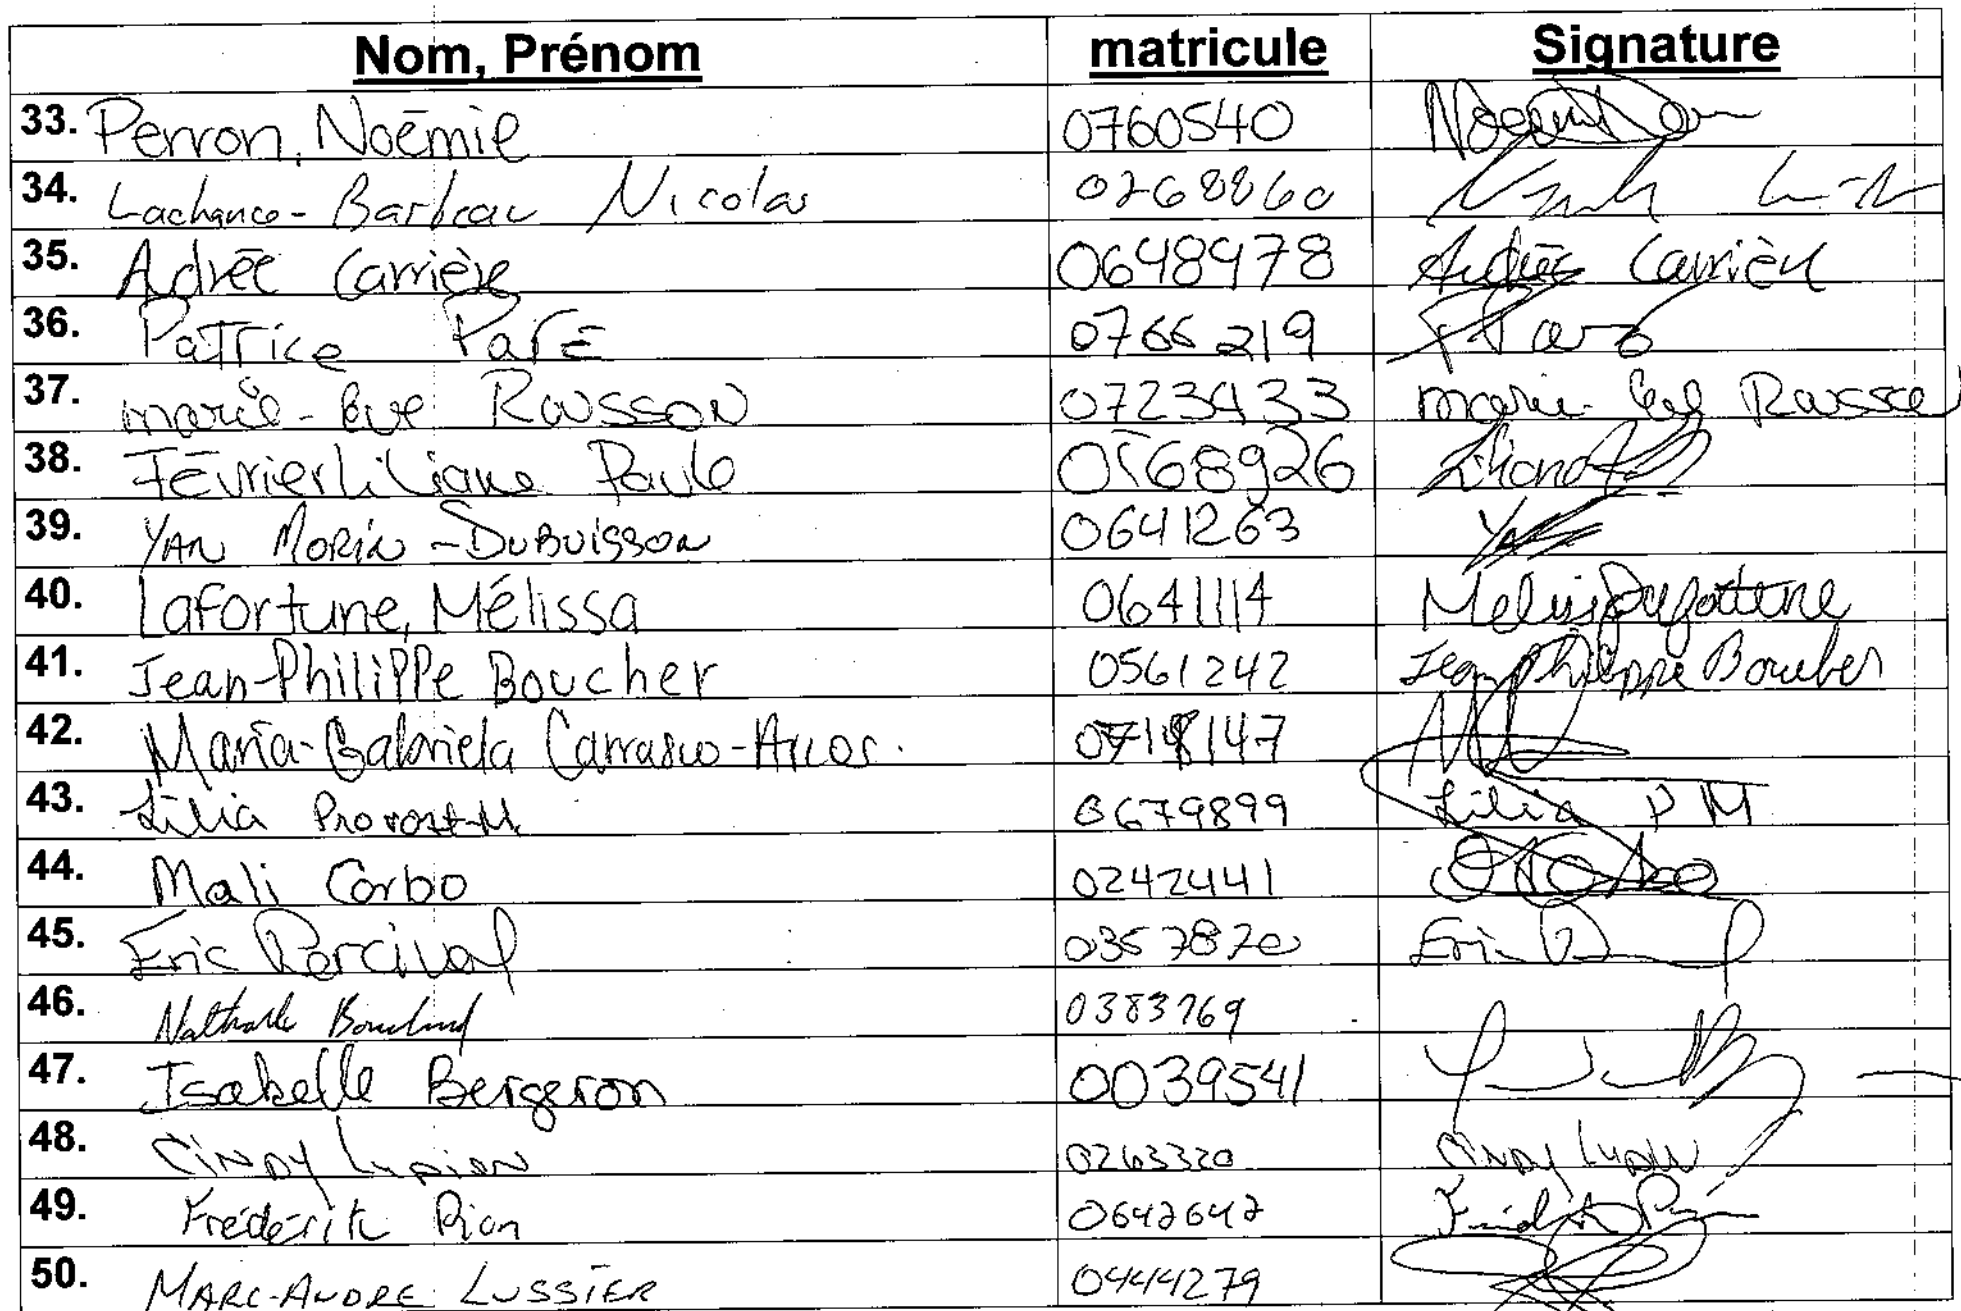 Nom, Prénom matricule Signature
33. Perron, Noémie 0760540
34. Lachance-Barbeau Nicolas 0268860
35. Adrée Carrière 0648978 Carrière
36. Patrice Paré 0766219
37. marie-Eve Rousson 0723433 marie-
38. Février Liliane Paule 0568926
39. YAN MORIN-DUBUISSON 0641263
40. Lafortune, Mélissa 0641114
41. Jean-Philippe Boucher 0561242 Jean Philippe Boucher
42. Maria-Gabriela Carrasco-Arcos. 147
43. Lilia Provost-M. 0679899 Lilia P M
44. Mali Corbo 0242441
45. Eric Percival 0357870 Eric
46. 0383769
47. Isabelle Bergeron 0039541
48. CINDY 0263320 CINDY
49. Frédérik Pion 0642642
50. MARC-ANDRE LUSSIER 0444279